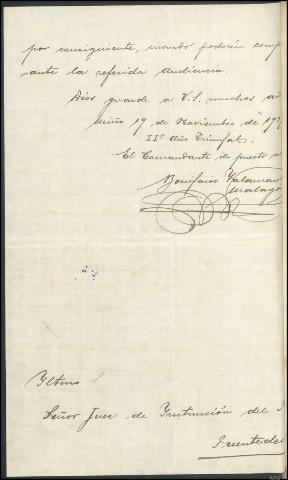 por consiguiente, cuando podrán comp
ante la referida Audiencia.
Dios guarde a V.S. muchos añ
Miño 19 de Noviembre de 193
IIº Año Triunfal.
El Comandante de puesto a
Bonifacio
Málaga
Yltmo S
Señor Juez de Instrucción del
Puentede